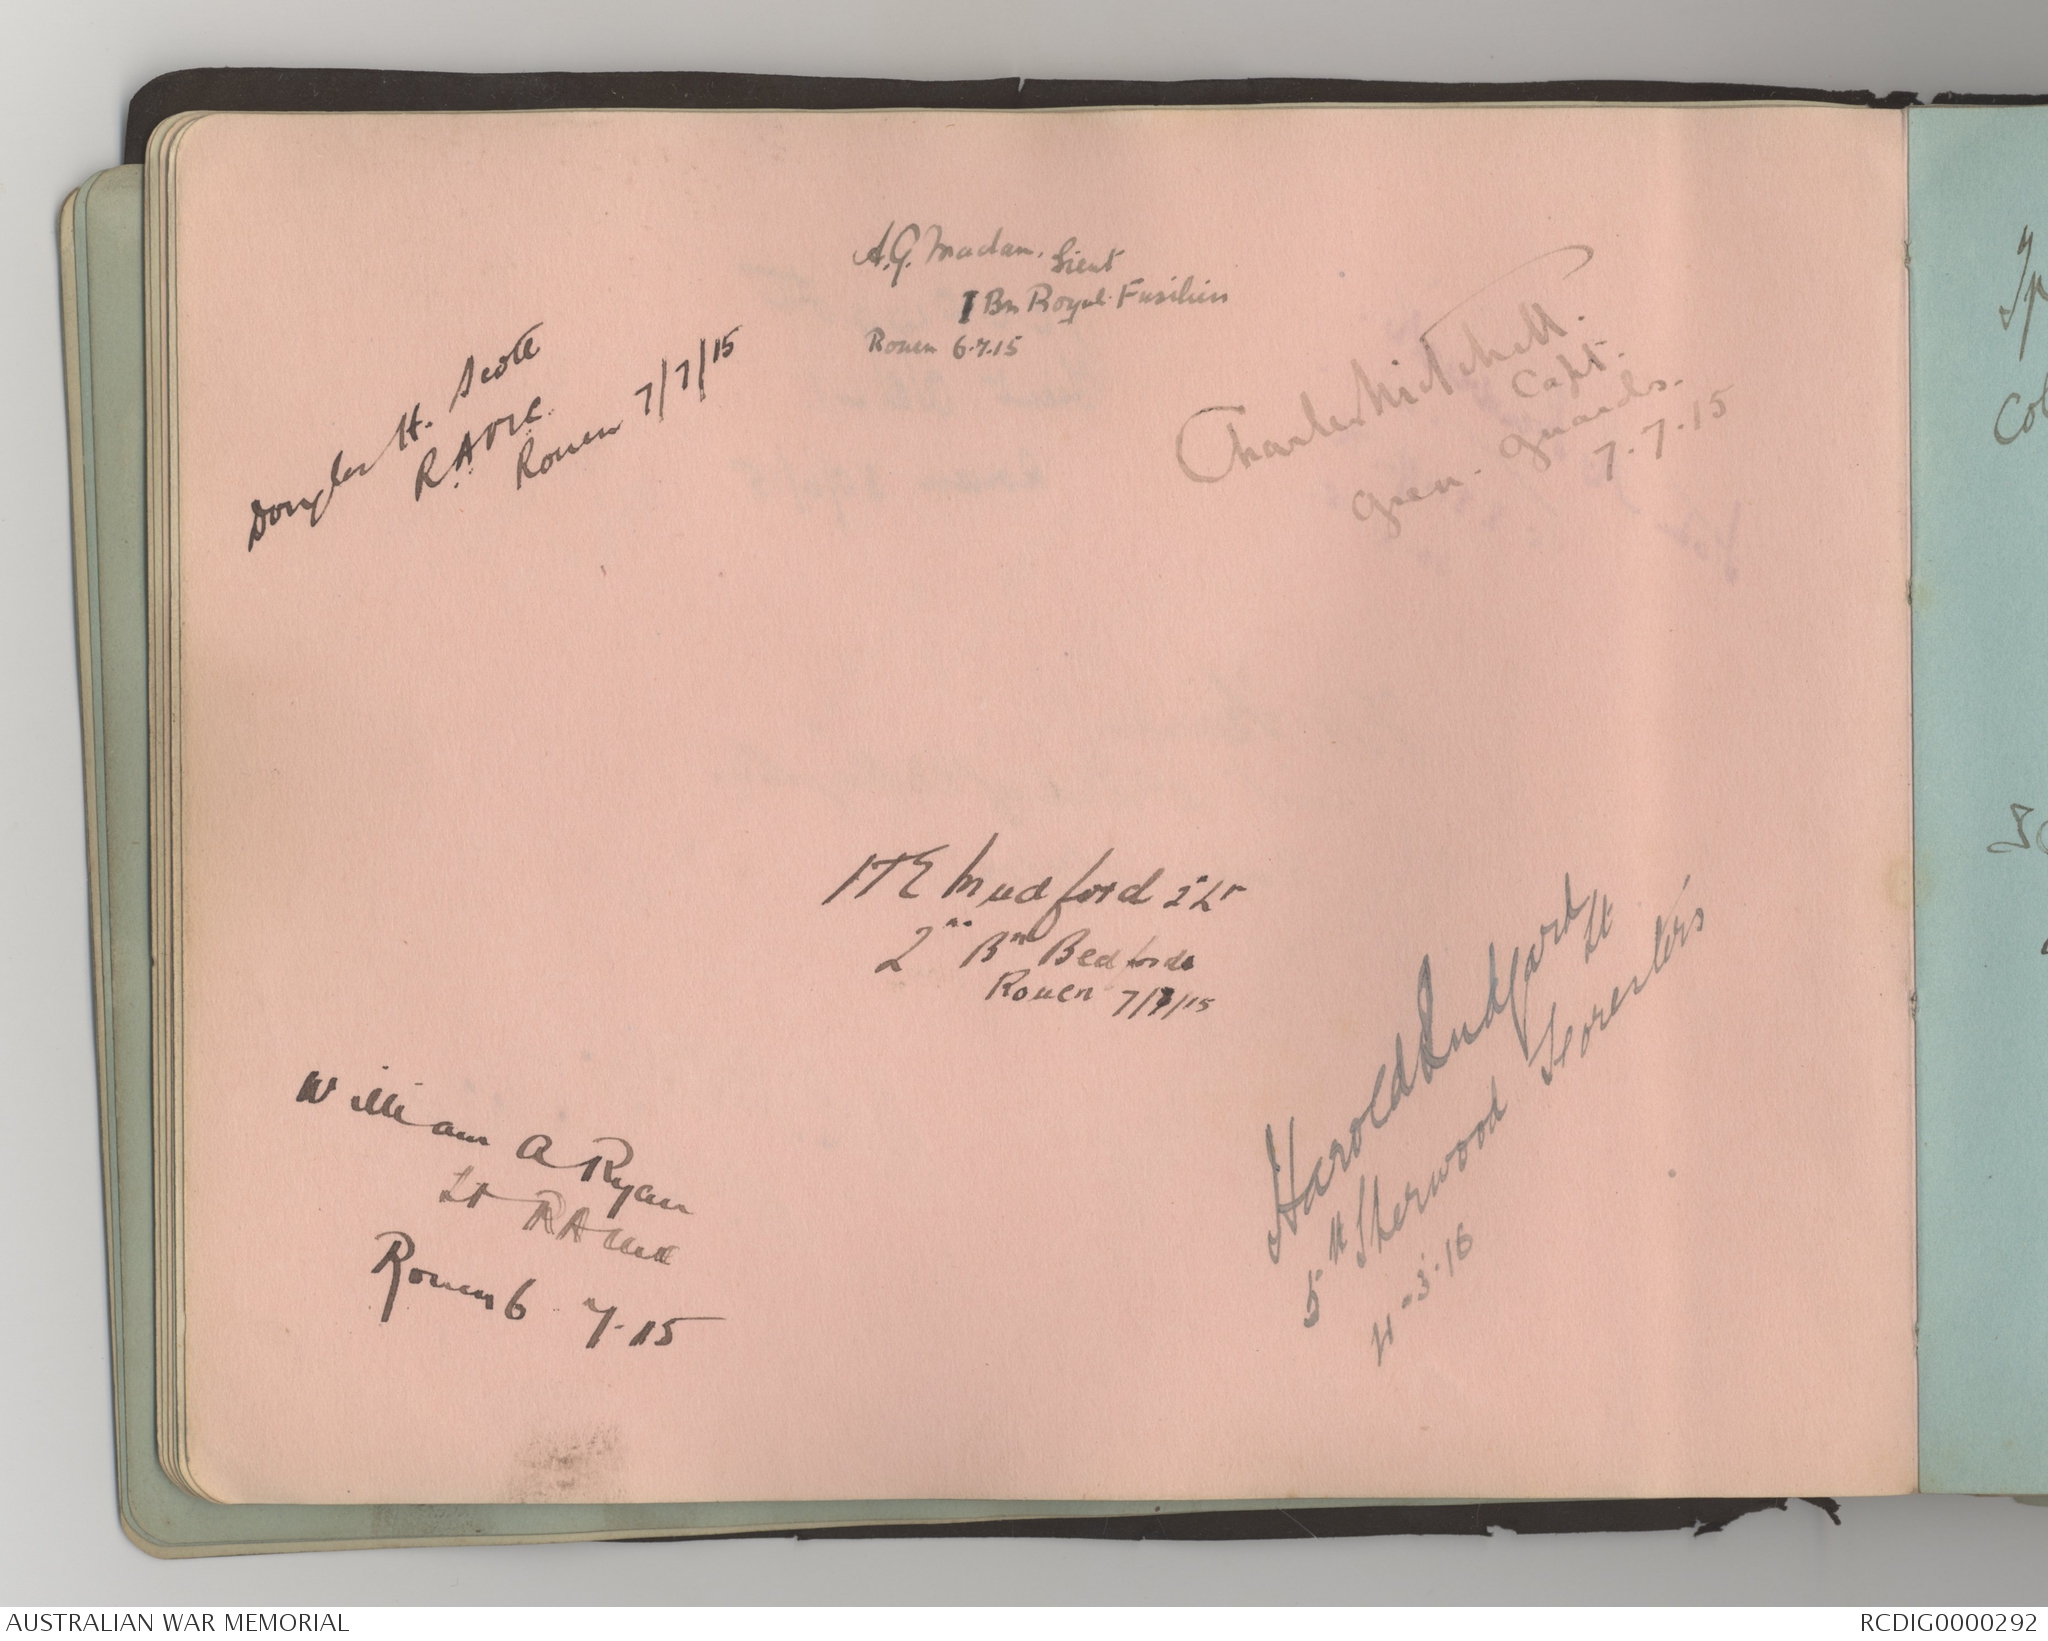 A.G. Madan. Lieut
1 Bn Royal Fusiliers
Rouen 6.7.15
Douglas H. Scott
R.A.M.C.
Rouen 7/7/15
Charles Mitchell.
Capt.
Gren. Guards.
7.7.15
Mudford 2 Lt
2nd Bn Bedfords
Rouen 7/7/15
William A Ryan
Lt RAMC
Rouen 6 7.15
Harold
Lt
5th Sherwood Foresters
3.16
Col
AUSTRALIAN WAR MEMORIAL
RCDIG0000292